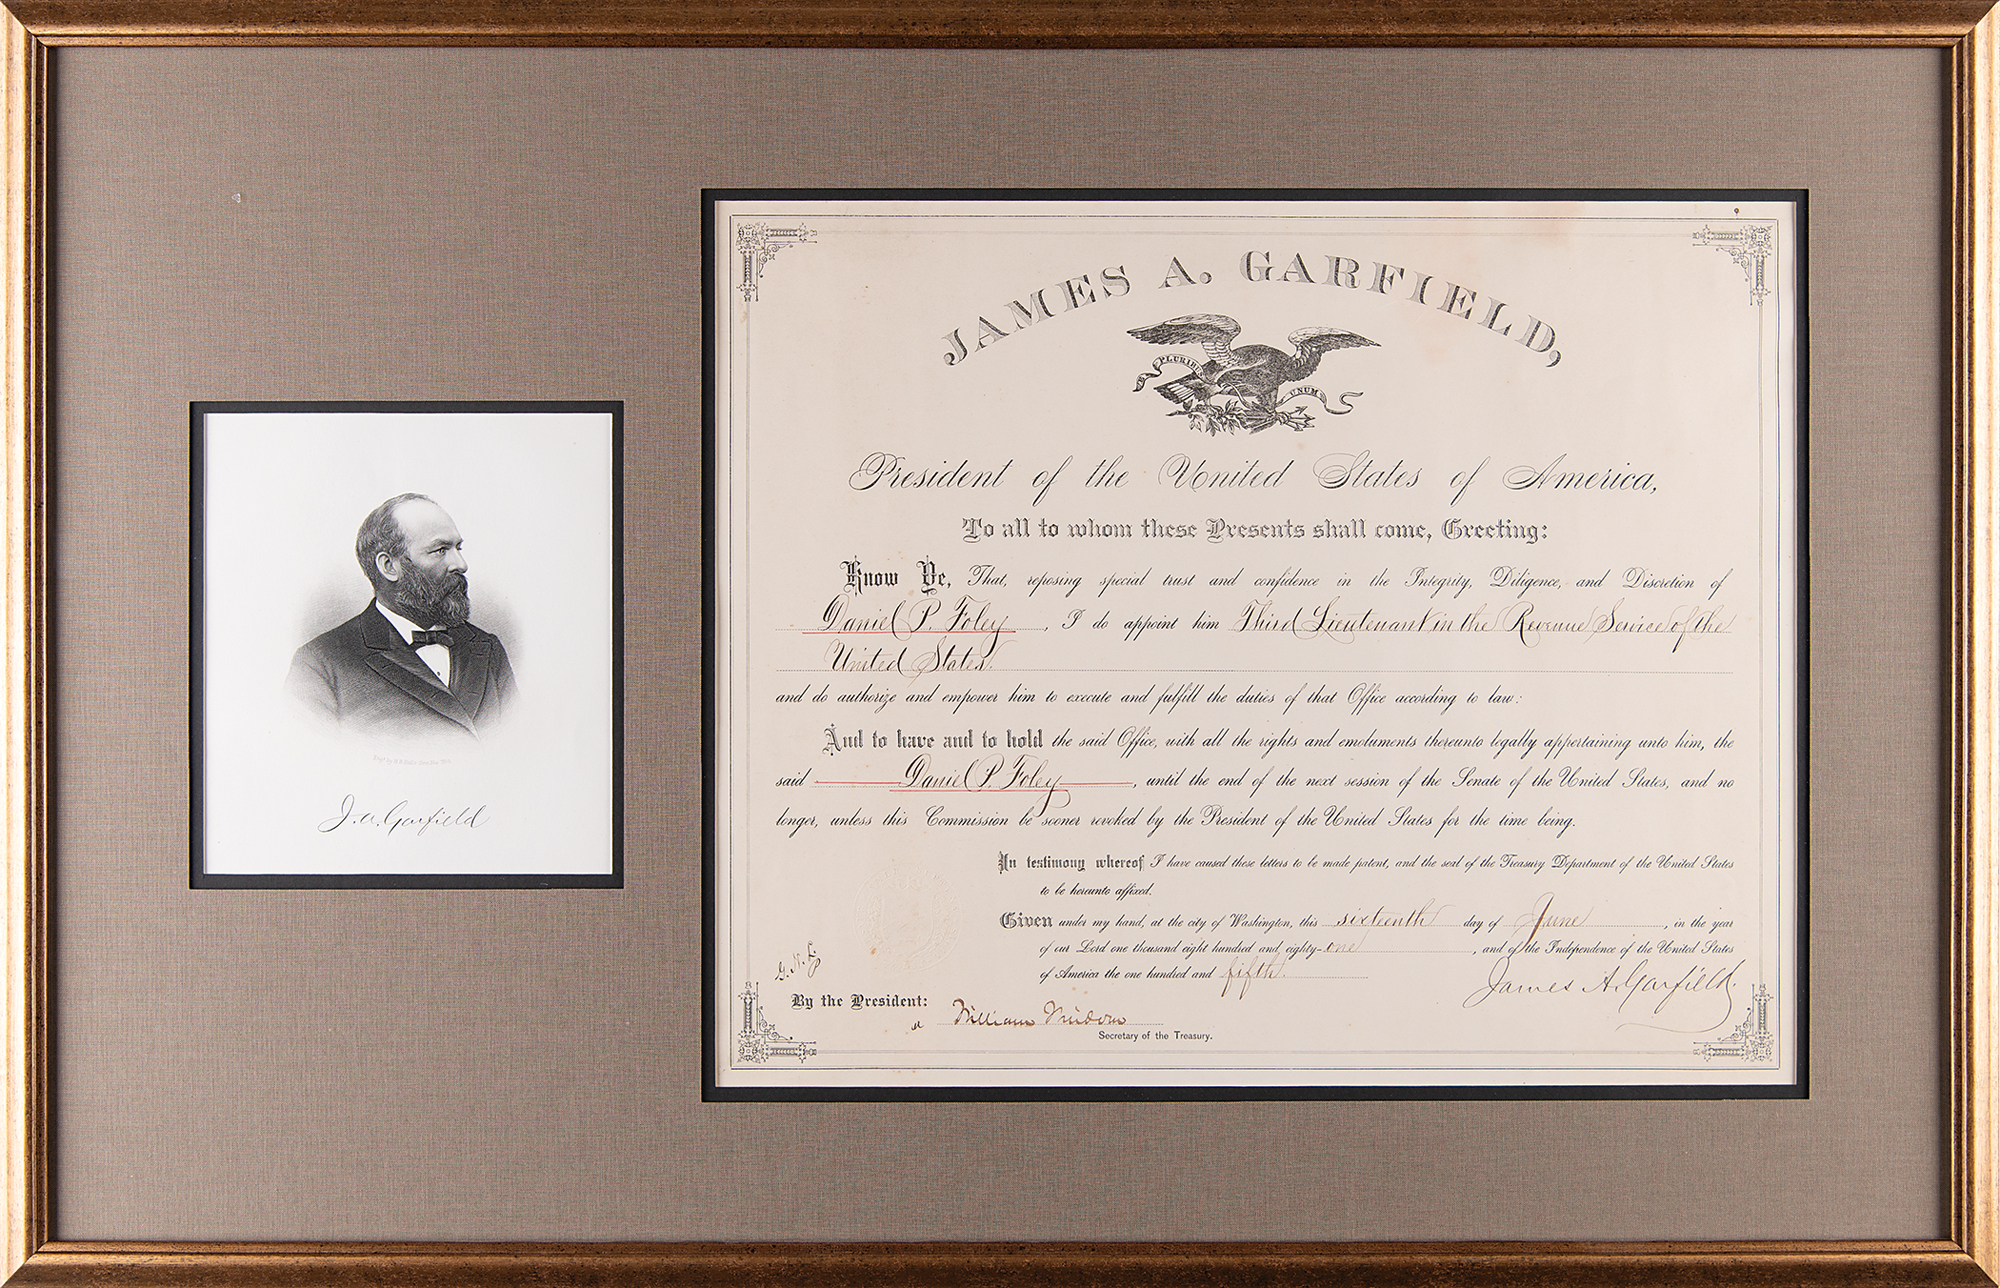 J. A. Garfield
JAMES A. GARFIELD,
PLURIBUS
UNUM
President of the United States of America,
To all to whom these Presents shall come, Greeting:
Know Ye, That, reposing special trust and confidence in the Integrity, Diligence, and Discretion of
Daniel P. Foley, I do appoint him Third Lieutenant in the Revenue Service of the
United States.
and do authorize and empower him to execute and fulfill the duties of that Office according to law:
And to have and to hold the said Office, with all the rights and emoluments thereunto legally appertaining unto him, the
said Daniel P. Foley, until the end of the next session of the Senate of the United States, and no
longer, unless this Commission be sooner revoked by the President of the United States for the time being.
In testimony whereof I have caused these letters to be made patent, and the seal of the Treasury Department of the United States
to be hereunto affixed.
Given under my hand, at the city of Washington, this sixteenth day of June, in the year
of our Lord one thousand eight hundred and eighty-one, and of the Independence of the United States
of America the one hundred and fifth.
James A. Garfield
By the President:
William Windom
Secretary of the Treasury.